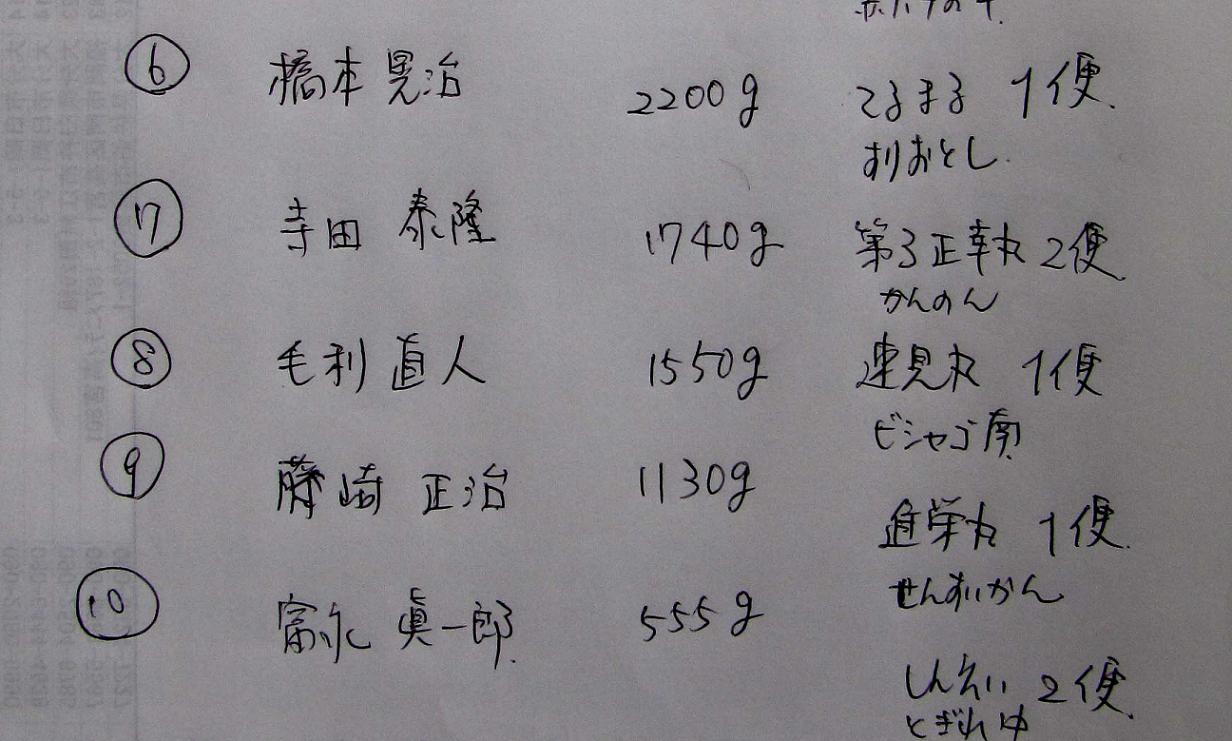 ⑥ 橋本 晃治 2200g てるまる 1便.
おりおとし.
⑦ 寺田 泰隆 1740g 第3正幸丸 2便.
かんのん
⑧ 毛利 直人 1550g 連見丸 1便
ビシャゴ南
⑨ 藤崎 正治 1130g
進栄丸 1便.
せんすいかん
⑩ 富永 眞一郎. 555g
しんえい 2便.
とぎれ中